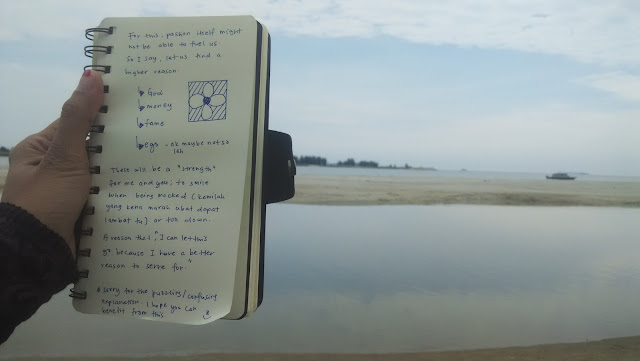 For this, passion itself might
not be able to fuel us.
So I say, let us find a
higher reason.
God
money
fame
ego - ok maybe not so
lah
These will be a "strength"
for me and you, to smile
when being mocked (kamilah
yang kena marah ubat dapat
lambat tu) or ton down.
A reason that, "I can let this
go because I have a better
reason to serve for."
* Sorry for the puzzling / confusing
explanation. I hope you can
benefit from this.